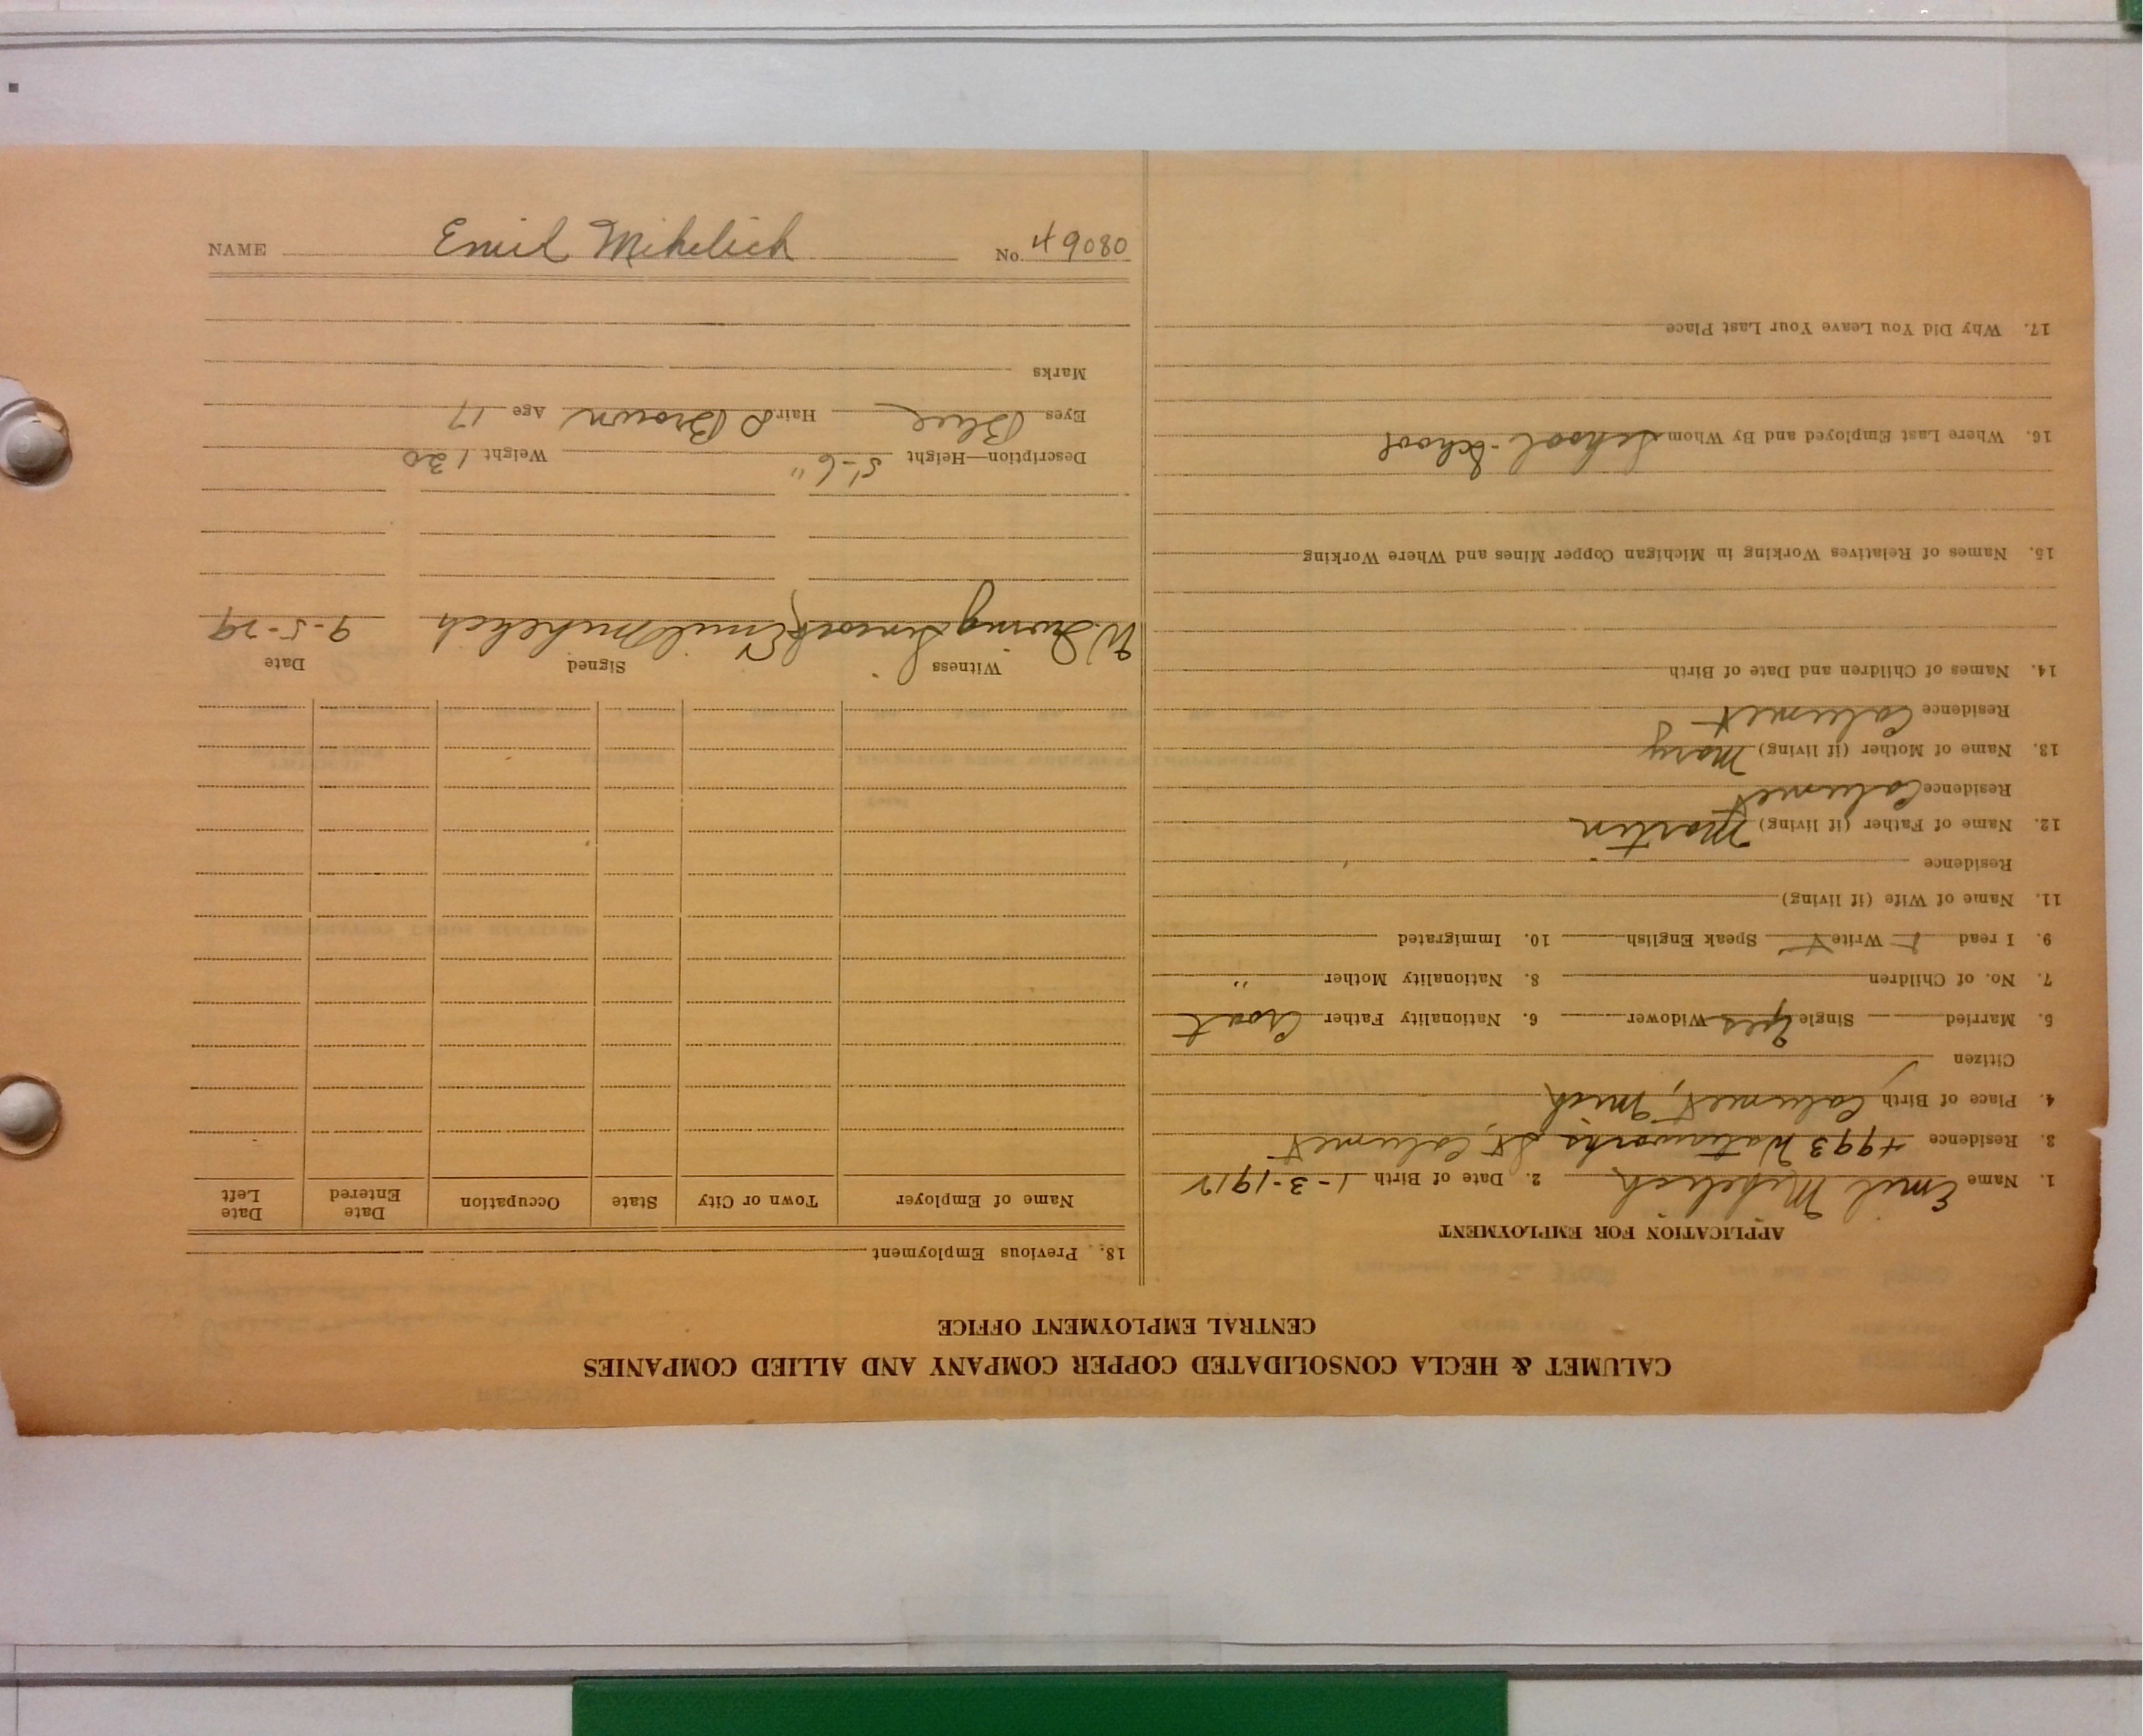 CALUMET & HECLA CONSOLIDATED COPPER COMPANY AND ALLIED COMPANIES
CENTRAL EMPLOYMENT OFFICE
APPLICATION FOR EMPLOYMENT
1. Name Emil Mihelich 2. Date of Birth 1-3-1912
3. Residence 4993 Waterworks St, Calumet
4. Place of Birth Calumet, Mich
Citizen
5. Married Single Yes Widower 6. Nationality Father Croat
7. No. of Children 8. Nationality Mother "
9. I read Write Speak English 10. Immigrated
11. Name of Wife (if living)
Residence
12. Name of Father (if living) Martin
Residence Calumet
13. Name of Mother (if living) Mary
Residence Calumet
14. Names of Children and Date of Birth
15. Names of Relatives Working in Michigan Copper Mines and Where Working
16. Where Last Employed and By Whom School - School
17. Why Did You Leave Your Last Place
18. Previous Employment
Name of Employer Town or City State Occupation Date Entered Date Left
Witness Signed Date
W. Emil Mihelich 9-5-29
Description—Height 5'-6" Weight 130
Eyes Blue Hair Brown Age 17
Marks
NAME Emil Mihelich No. 49080